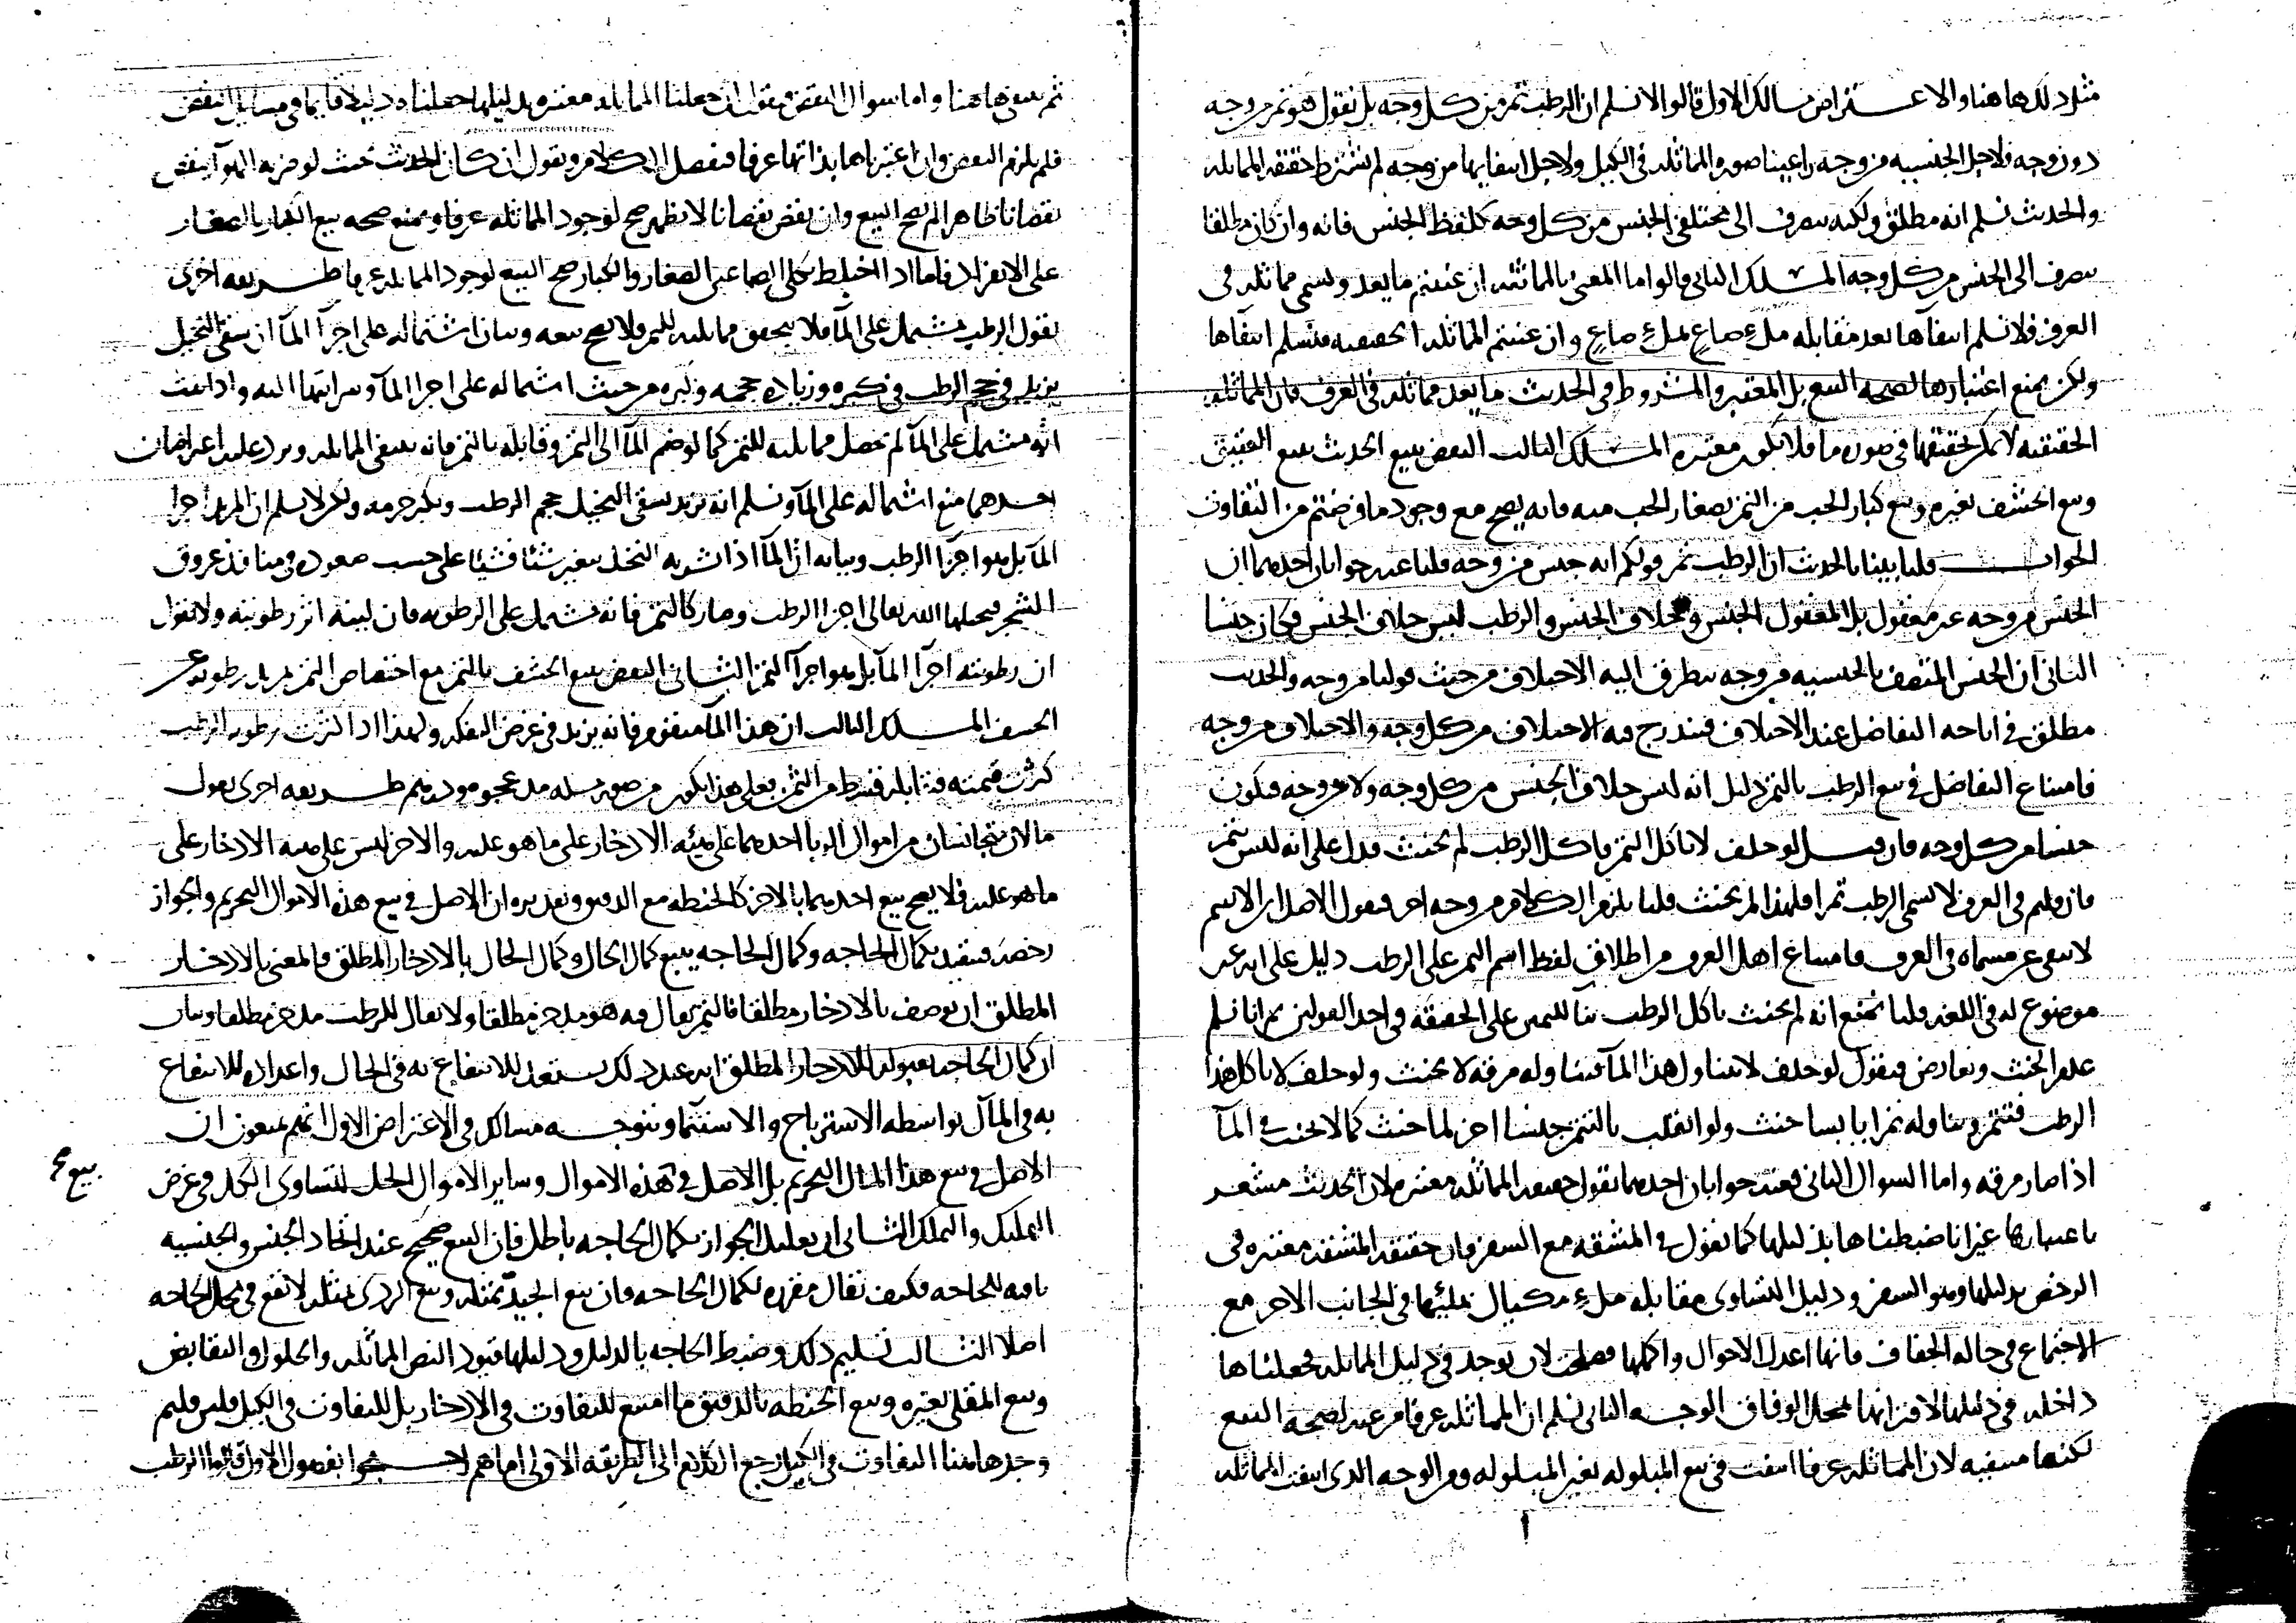 مثل ذلك هاهنا والاعتراض مسالك الاول قالوا لا نسلم ان الرطب تمر من كل وجه بل نقول هو تمر من وجه
دون وجه فلاجل الجنسيه من وجه راعينا صوره المماثله في الكيل ولاجل انتفايها من وجه لم نشترط حقيقه المماثله
والحديث نسلم انه مطلق ولكنه ينصرف الى مختلفي الجنس من كل وجه كلفظ الجنس فانه وان كان مطلقا
ينصرف الى الجنس من كل وجه المسلك الثاني قالوا ما المعني بالمماثله ان عنيتم ما يعد ويسمى مماثله في
العرف فلا نسلم انتفاها بعد مقابله ملء صاع بملء صاع وان عنيتم المماثله الحقيقيه فنسلم انتفاها
ولكن نمنع اعتبارها لصحه البيع بل المعتبر والمشروط في الحديث ما يعد مماثله في العرف فان المماثله
الحقيقيه لا يمكن تحقيقها في صوره ما فلا تكون معتبره المسلك الثالث النقض ببيع الحديث ببيع العتيق
وبيع الحشف بغيره وبيع كبار الحب من التمر بصغار الحب منه فانه يصح مع وجود ما فرضتم من التفاوت
الجواب قلنا بينا بالحديث ان الرطب تمر قولكم انه جنس من وجه قلنا عنه جوابان احدهما ان
الجنس من وجه غير معقول بل المعقول الجنس وخلاف الجنس والرطب ليس خلاف الجنس فكان جنسا
الثاني ان الجنس المتصف بالجنسيه من وجه يتطرق اليه الاختلاف من حيث قولنا من وجه والحديث
مطلق في اباحه التفاضل عند الاختلاف فيندرج فيه الاختلاف من كل وجه والاختلاف من وجه
فامتناع التفاضل في بيع الرطب بالتمر دليل انه ليس خلاف الجنس من كل وجه ولا من وجه فيكون
جنسا من كل وجه فان قيل لو حلف لا ياكل التمر فاكل الرطب لم يحنث فدل على انه ليس بتمر
فان قلتم في العرف لا يسمى الرطب تمرا فلهذا لم يحنث قلنا يلزم الكلام من وجه اخر فنقول الاصل ان الاسم
لا ينفى عن مسماه في العرف فامتناع اهل العرف من اطلاق لفظ اسم التمر على الرطب دليل على انه غير
موضوع له في اللغه قلنا نمنع انه لم يحنث باكل الرطب بنا لليمين على الحقيقه في احد القولين ثم انا نسلم
عدم الحنث ونعارض فنقول لو حلف لا يتناول هذا الما فتناوله مرقه لا يحنث ولو حلف لا ياكل هذا
الرطب فتتمر وتناوله تمرا يابسا حنث ولو انقلب بالتتمر جنسا اخر لما حنث كما لا يحنث في الما
اذا صار مرقه واما السوال الثاني فعنه جوابان احدهما نقول حقيقه المماثله معتبره لان الحديث مشعر
باعتبارها غير انا ضبطناها بدليلها كما نقول في المشقه مع السفر فان حقيقه المشقه معتبره في
الرخص بدليلها وهو السفر ودليل التساوي مقابله ملء مكيال بمليها في الجانب الاخر مع
الاجتماع في حاله الجفاف فانها اعدل الاحوال واكملها فصلحت لان توجد في دليل المماثله فجعلناها
داخله في دليلها لاقترانها بمحل الوفاق الوجه الثاني نسلم ان المماثله عرفا مرعيه لصحه البيع
لكنها منتفيه لان المماثله عرفا انتفت في بيع المبلوله بغير المبلوله ومن الوجه الذي انتفت المماثله
ثم ينتفي هاهنا واما سوال النقض فنقول ان جعلنا المماثله معتبره بدليلها جعلنا دليلا قايما في مسايل النقض
فلم يلزم النقض وان اعتبرناها بذاتها عرفا فنفصل الكلام ونقول ان كان الحديث بحيث لو ضربه الهوا ينقص
نقصانا ظاهرا لم يصح البيع وان نقص نقصانا لا يظهر صح لوجود المماثله عرفا ونمنع صحه بيع الكبار بالصغار
على الانفراد فاما اذا اختلط كلى الصاعين الصغار والكبار صح البيع لوجود المماثله عرفا طريقه اخرى
نقول الرطب مشتمل على الما فلا يتحقق مماثلته للتمر فلا يصح بيعه وبيان اشتماله على اجزا الما ان سقي النخيل
يزيد في حجم الرطب في كبره وزياده حجمه وكبره من حيث اشتماله على اجزا الما وسرايتها اليه واذا ثبت
انه مشتمل على الما لم تحصل مماثلته للتمر كما لو ضم الما الى التمر وقابله بالتمر فانه ينتفي المماثله ويرد عليه اعتراضان
احدهما منع اشتماله على الما ونسلم انه يزيد بسقي النخيل حجم الرطب ويكبر جرمه ولكن لا نسلم ان المزيد اجزا
الما بل هو اجزا الرطب وبيانه ان الما اذا تشربه النخل يتغير شيئا فشيئا على حسب صعوده في منافذ عروق
الشجر فيجعلها الله تعالى اجزا الرطب وصار كالتمر فانه مشتمل على الرطوبه فان لينه اثر رطوبته ولا نقول
ان رطوبته اجزا الما بل هو اجزا التمر الثاني النقض ببيع الحشف بالتمر مع اختصاص التمر بمزيد رطوبه عن
الحشف المسلك الثالث ان هذا الما متقوم فانه يزيد في غرض التفكه ولهذا اذا كثرت رطوبه الرطب
كثرت قيمته فيقابله قسط من الثمن فعلى هذا يكون من صور مسله مد عجوه ودرهم طريقه اخرى نقول
مالان متجانسان من اموال الربا احدهما على هيئه الادخار على ما هو عليه والاخر ليس على هيئه الادخار على
ما هو عليه فلا يصح بيع احدهما بالاخر كالحنطه مع الدقيق وتقديره ان الاصل في بيع هذه الاموال التحريم والجواز
رخصه فيتقيد بكمال الحاجه وكمال الحاجه يتبع كمال الحال وكمال الحال بالادخار المطلق والمعني بالادخار
المطلق ان يوصف بالادخار مطلقا فالتمر يقال فيه هو مدخر مطلقا ولا يقال للرطب مدخر مطلقا وبيان
ان كمال الحاجه بقبوله للادخار المطلق انه عند ذلك يستعد للانتفاع به في الحال واعداده للانتفاع
به في المآل بواسطه الاسترباح والاستنما ويتوجه مسالك في الاعتراض الاول انهم يمنعون ان
الاصل في بيع هذا المال التحريم بل الاصل في هذه الاموال وساير الاموال الحل لتساوي الكل في غرض
بيع
التمليك والتملك الثاني ان تعليل الجواز بكمال الحاجه باطل فان البيع صحيح عند اتحاد الجنس والجنسيه
نافيه للحاجه فكيف تقال مقرره لكمال الحاجه فان بيع الجيد بمثله وبيع الردي بمثله لا تقع في محل الحاجه
اصلا الثالث تسليم ذلك وضبط الحاجه بالدليل ودليلها قيود النص المماثله والحلول والتقابض
وبيع المقلي بغيره وبيع الحنطه بالدقيق ما امتنع للتفاوت في الادخار بل للتفاوت في الكيل فلين قلتم
وجد هاهنا التفاوت في الكيل رجع الكلام الى الطريقه الاولى اما هم احتجوا بفصول الاول قالوا الرطب